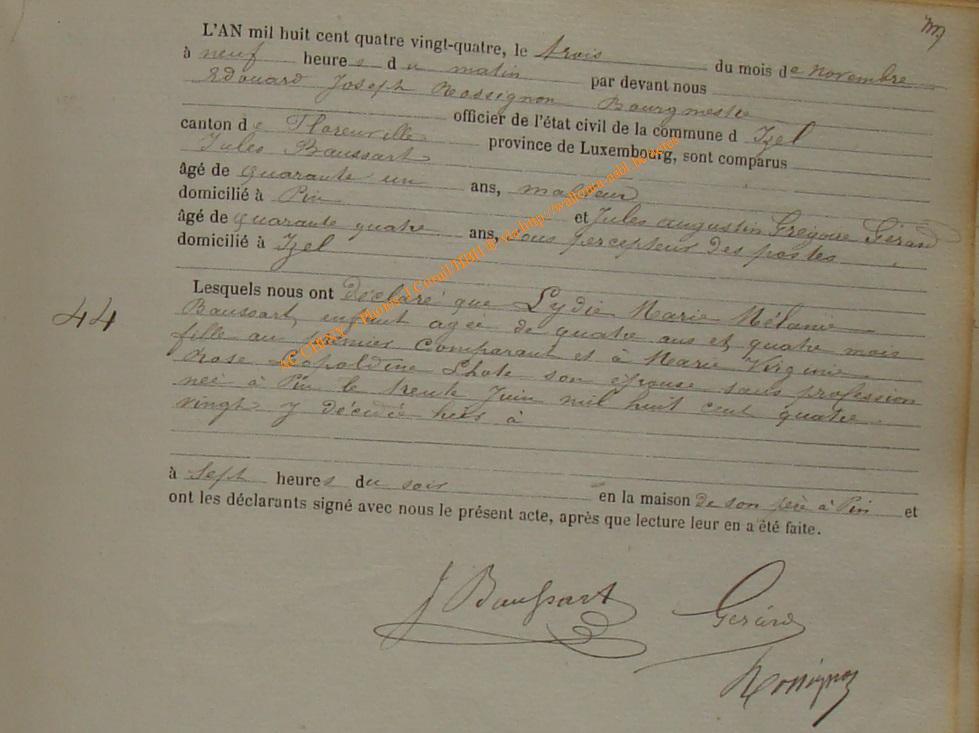 L'AN mil huit cent quatre vingt-quatre, le trois du mois de novembre
à neuf heures du matin par devant nous
Edouard Joseph Rossignon Bourgmestre
officier de l'état civil de la commune d Izel
canton de Florenville province de Luxembourg, sont comparus
Jules Baussart
âgé de quarante un ans,
domicilié à Pin et Jules augustin Grégoire Gérard
âgé de quarante quatre ans, sous percepteur des postes
domicilié à Izel
44
Lesquels nous ont déclaré que Lydie Marie Mélanie
Baussart, enfant agée de quatre ans et quatre mois
fille au premier comparant et à Marie Virginie
Rose Léopoldine Lhote son épouse sans profession
née à Pin le trente Juin mil huit cent quatre
vingt y décédée hier à
à Sept heures du soir en la maison de son père à Pin et
ont les déclarants signé avec nous le présent acte, après que lecture leur en a été faite.
J Baussart Gérard
Rossignon